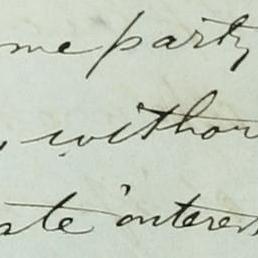 me party
, withou
ate interes